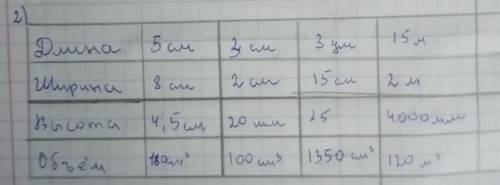 2)
Длина 5 см 3 см 3 дм 15 м
Ширина 8 см 2 см 15 см 2 м
Высота 4,5 см 20 мм 25 4000 мм
Объём 180 см³ 100 см³ 1350 см³ 120 м³